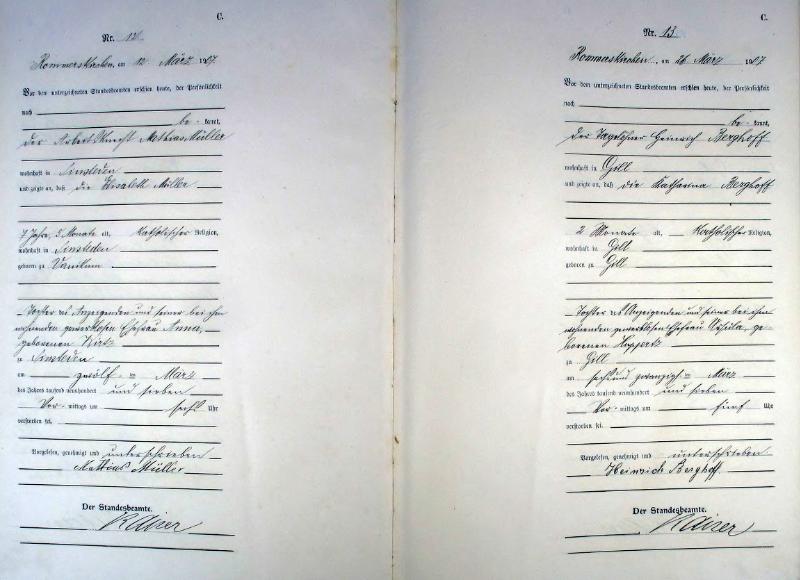 C.
Nr. 12
Rommerskirchen, am 12. März 1907.
Vor dem unterzeichneten Standesbeamten erschien heute, der Persönlichkeit
nach
be- kannt,
der Arbeitsknecht Mathias Müller
wohnhaft in Sinsteden
und zeigte an, daß die Elisabeth Müller
7 Jahre, 5 Monate alt, katholischer Religion,
wohnhaft in Sinsteden
geboren zu Vanikum
Tochter des Anzeigenden und seiner bei ihm
wohnenden gewerblosen Ehefrau Anna,
geborenen Kirtz
zu Sinsteden
am zwölf- ten März
des Jahres tausend neunhundert und sieben
Vor- mittags um sechs Uhr
verstorben sei.
Vorgelesen, genehmigt und unterschrieben
Mathias Müller
Der Standesbeamte.
C.
Nr. 13
Rommerskirchen, am 26. März 1907
Vor dem unterzeichneten Standesbeamten erschien heute, der Persönlichkeit
nach
be- kannt,
der Tagelöhner Heinrich Berghoff
wohnhaft in Gill
und zeigte an, daß die Katharina Berghoff
2 Monate alt, katholischer Religion,
wohnhaft in Gill
geboren zu Gill
Tochter des Anzeigenden und seiner bei ihm
wohnenden gewerblosen Ehefrau Ursula, ge-
borenen Huppertz
zu Gill
am sechsundzwanzigsten März
des Jahres tausend neunhundert und sieben
Vor- mittags um fünf Uhr
verstorben sei.
Vorgelesen, genehmigt und unterschrieben
Heinrich Berghoff
Der Standesbeamte.